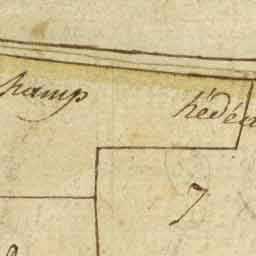 hamp hédéa
7